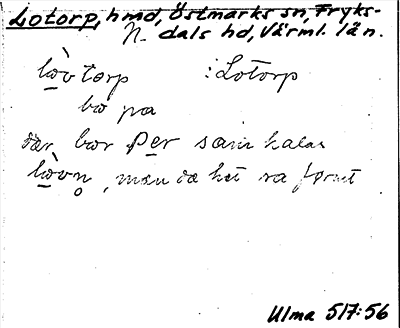 Lotorp, hmd, Östmarks sn, Fryks-
N- dals hd, Värml. län.
lo̱vtorp :Lotorp
bo pa
dær bor Per sam kalas
lo̱vn̥, mæn dæ het ra fø
Ulma 517:56